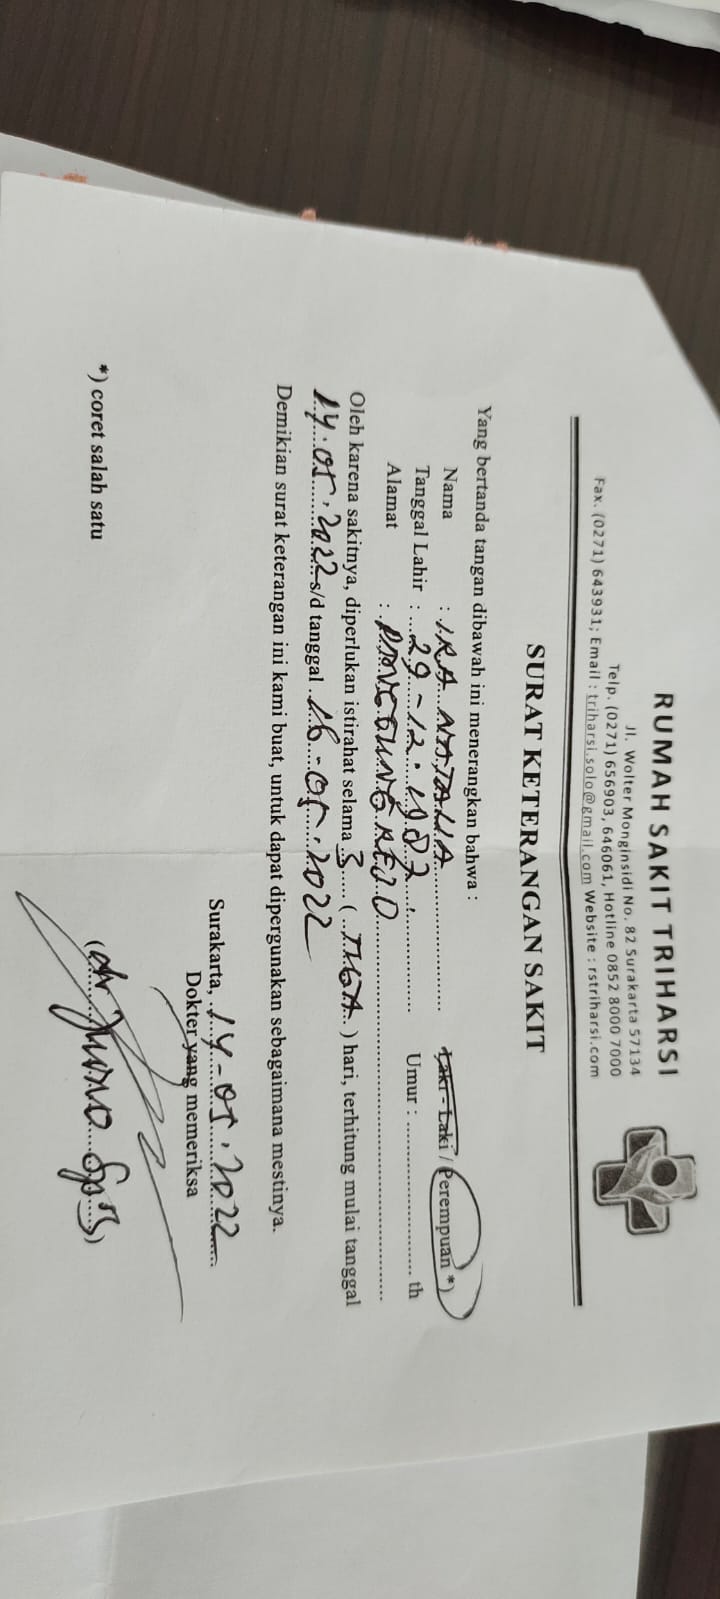 RUMAH SAKIT TRIHARSI
Jl. Wolter Monginsidi No. 82 Surakarta 57134
Telp. (0271) 656903, 646061, Hotline 0852 8000 7000
Fax. (0271) 643931; Email : triharsi.solo@gmail.com Website : rstriharsi.com
SURAT KETERANGAN SAKIT
Yang bertanda tangan dibawah ini menerangkan bahwa :
Nama : IRA NATALIA Laki - Laki / Perempuan *)
Tanggal Lahir : 29-12-1987 Umur : .......... th
Alamat : RINGGUNG REJO
Oleh karena sakitnya, diperlukan istirahat selama 3 ( TIGA ) hari, terhitung mulai tanggal
14.05.2022 s/d tanggal 16-05.2022
Demikian surat keterangan ini kami buat, untuk dapat dipergunakan sebagaimana mestinya.
Surakarta, 14-05.2022
Dokter yang memeriksa
(dr )
*) coret salah satu